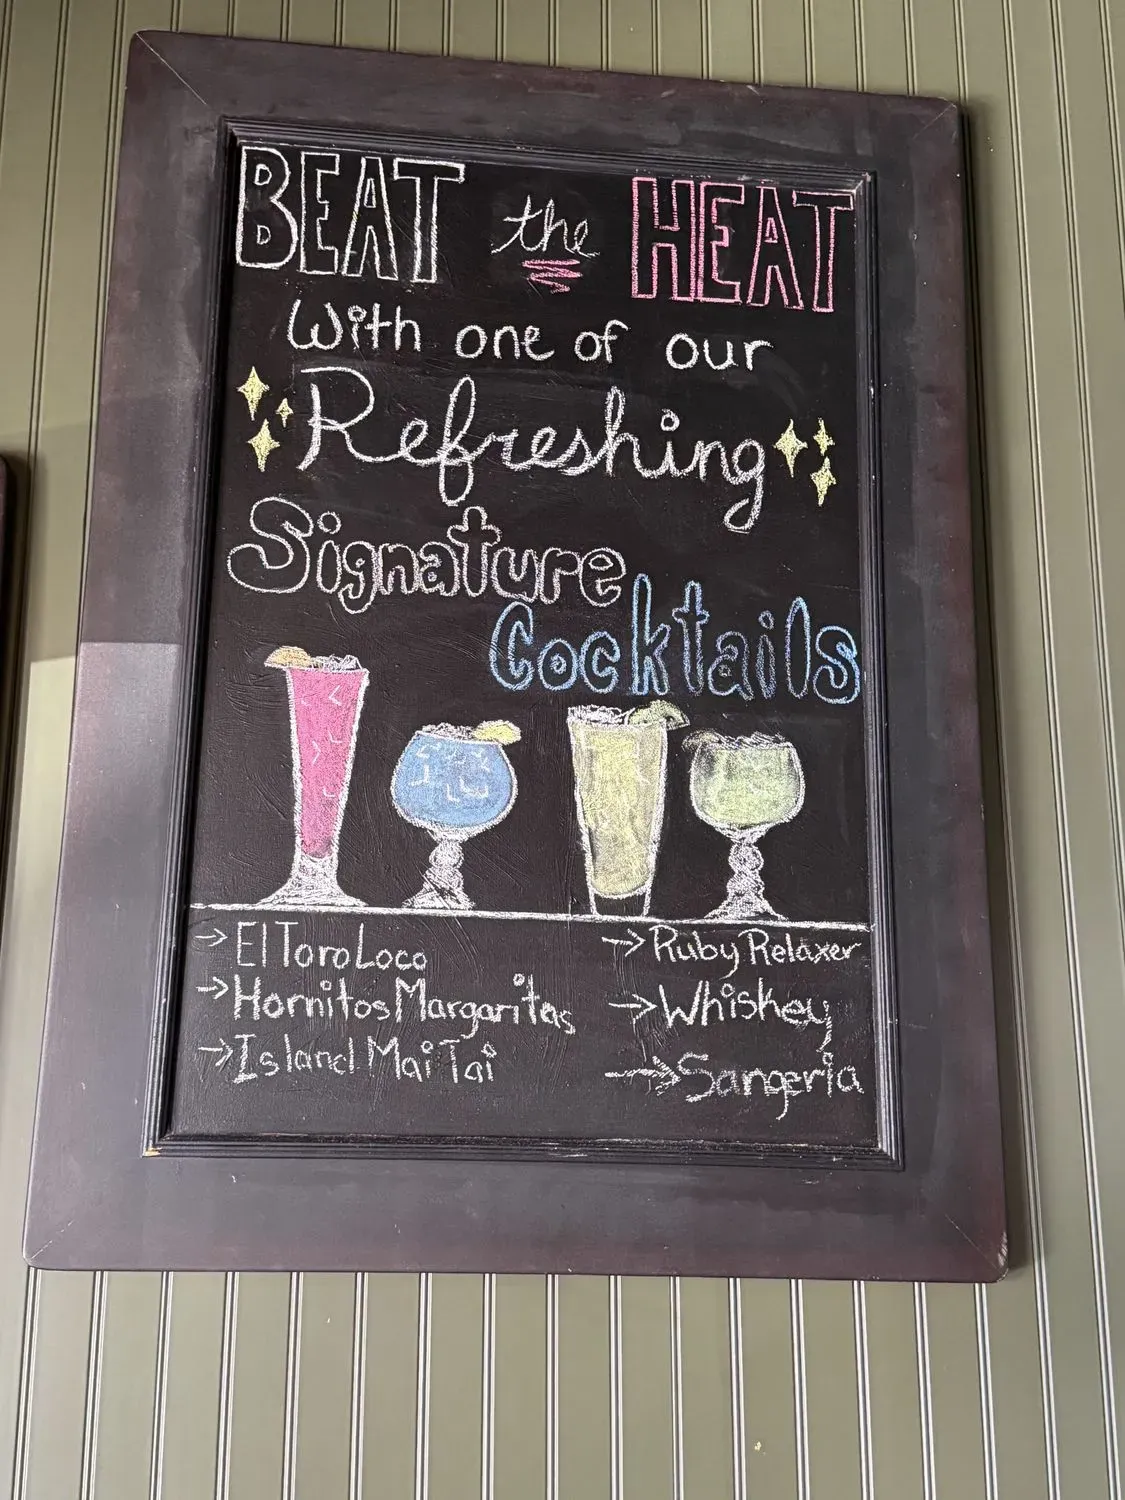 BEAT the HEAT
With one of our
Refreshing
Signature
Cocktails
→ El Toro Loco
→ Hornitos Margaritas
→ Island Mai Tai
→ Ruby Relaxer
→ Whiskey
→ Sangeria